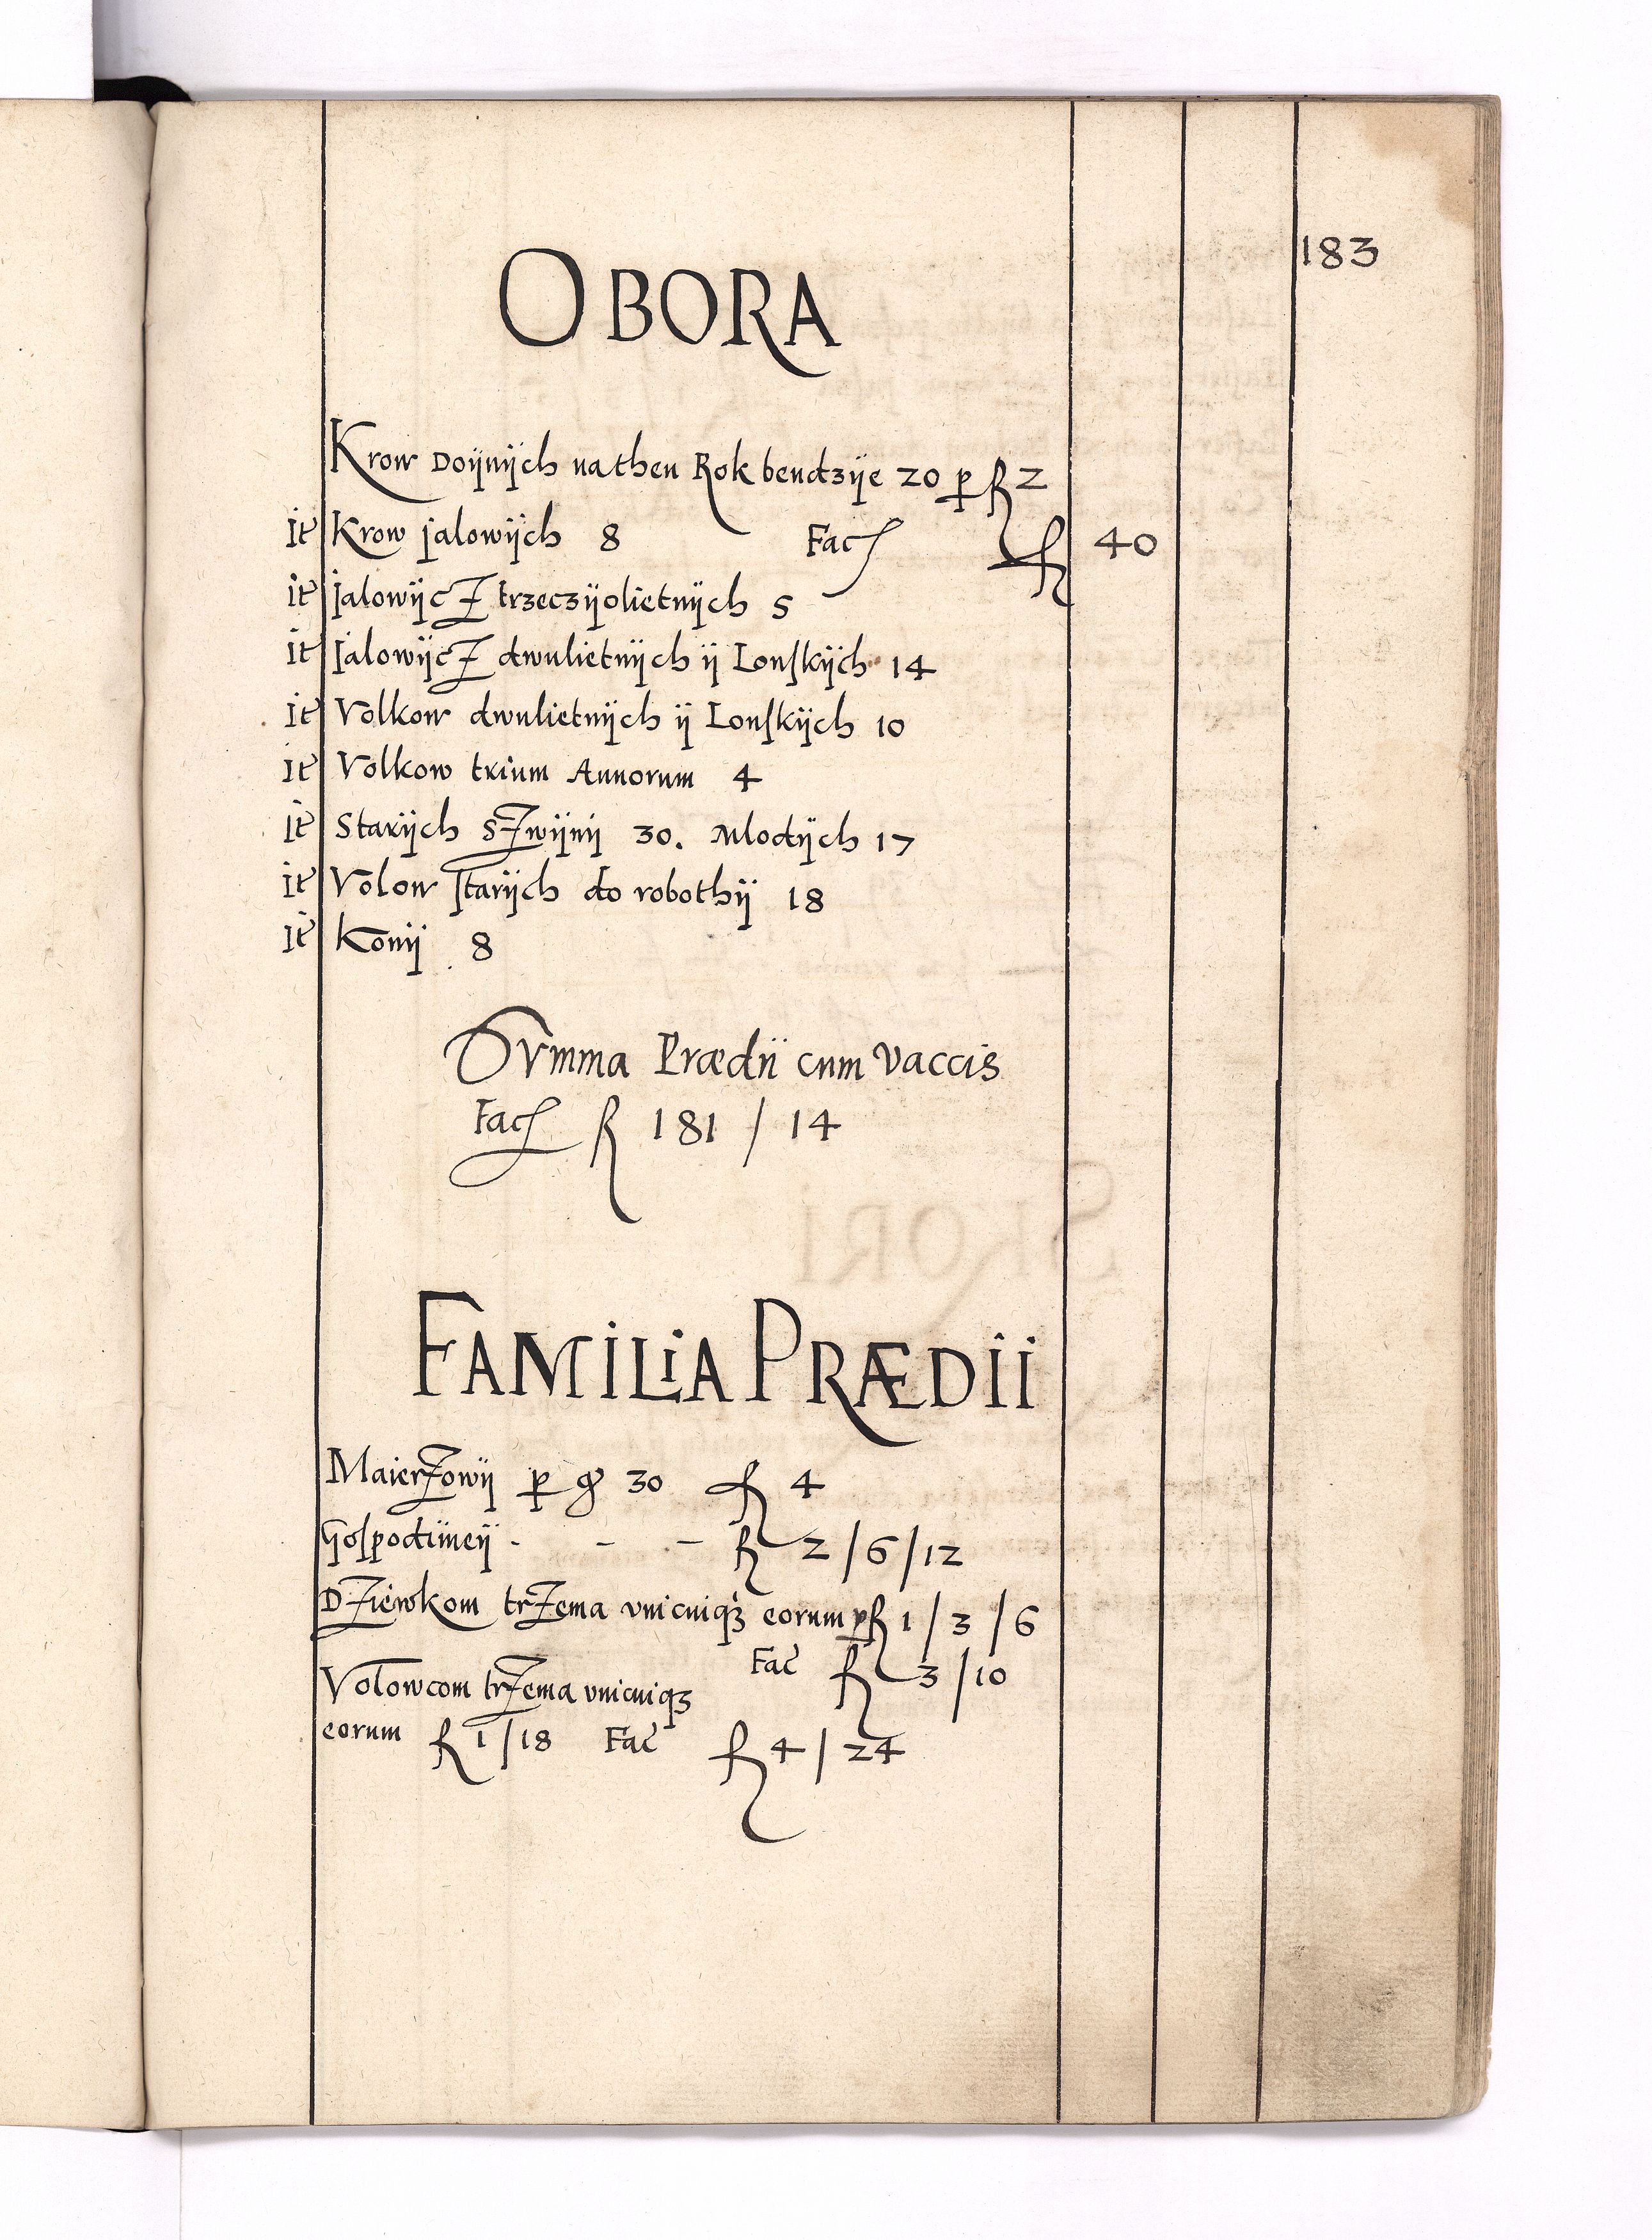 183
OBORA
Krow Doijnijch na then Rok bendzije 20 p fl 2
it Krow jalowijch 8 Fac fl 40
it jalowijcz trzeczijolietnijch 5
it jalowijcz dwulietnijch ij Lonskijch 14
it Volkow dwulietnijch ij Lonskijch 10
it Volkow trium Annorum 4
it Starijch szwijnij 30. Mlodijch 17
it Volow starijch do robothij 18
it Konij 8
Summa Prædii cum vaccis
Fac fl 181 / 14
FAMILIA PRÆDII
Maierzowij p g 30 fl 4
Gospodinеij - - - fl 2/6/12
Dziewkom trzema unicuiqз eorum p fl 1/3/6
Fac fl 3/10
Volowcom trzema unicuiqз
eorum fl 1/18 Fac fl 4/24